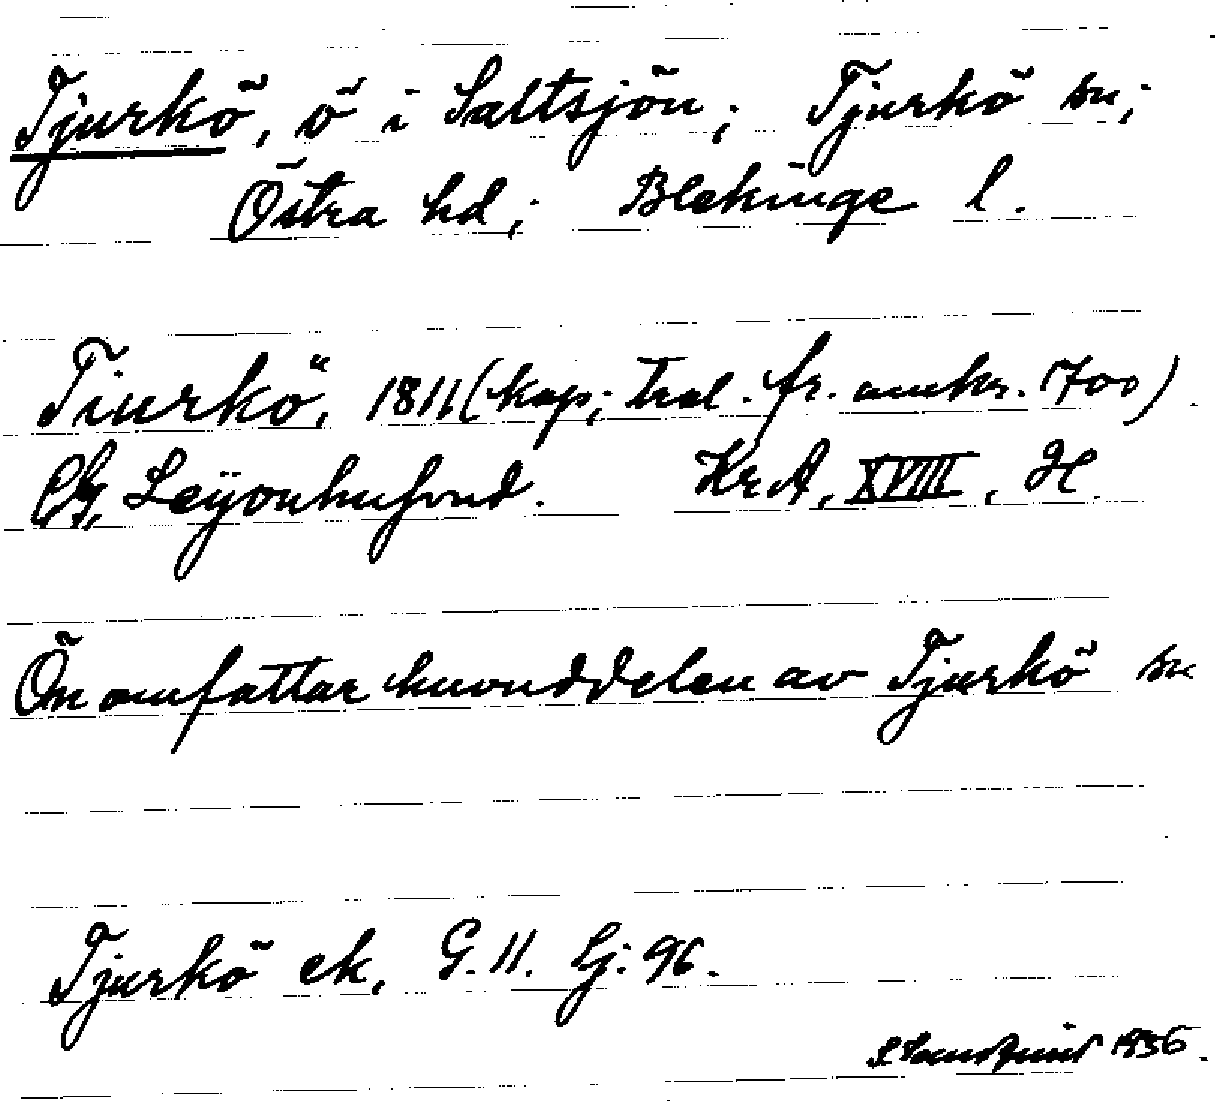 Tjurkö, ö i Saltsjön; Tjurkö sn;
Östra hd; Blekinge l.
Tiurkö, 1811 (kop; tral. fr. omkr. 1700)
CG, Leÿonhufvud. KrA, XVIII, H.
Ön omfattar huvuddelen av Tjurkö sn
Tjurkö ek, G. 11. Gj: 96.
1936.